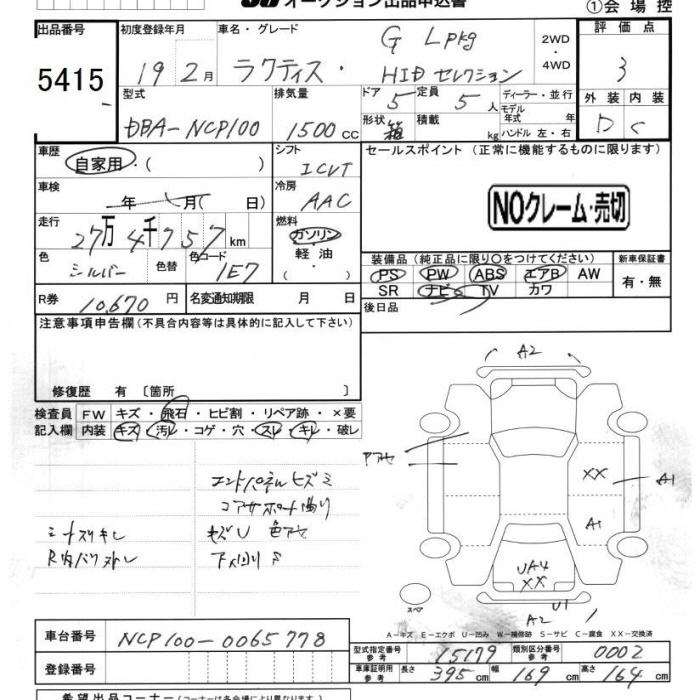 オークション出品申込書 ①会場控
出品番号 5415
初度登録年月 19 2月
車名・グレード ラクティス・ G Lpkg HIDセレクション
2WD・4WD
評価点 3
型式 DBA-NCP100
排気量 1500 CC
ドア 5 定員 5人
形状 箱 積載 kg
ディーラー・並行
モデル年式 年
ハンドル 左・右
外装 内装
D C
車歴 自家用・( )
シフト ICVT
セールスポイント (正常に機能するものに限ります)
車検 年 月( 日)
冷房 AAC
NOクレーム・売切
走行 27万4千757km
燃料 ガソリン・軽油・( )
色 シルバー 色替 色コード 1E7
装備品 (純正品に限り○をつけてください) 新車保証書
PS PW ABS エアB AW 有・無
SR ナビ TV カワ
R券 10,670円 名変通知期限 月 日
後日品
注意事項申告欄 (不具合内容等は具体的に記入して下さい)
修復歴 有 〔箇所 〕
検査員記入欄
FW キズ・飛石・ヒビ割・リペア跡・×要
内装 キズ・汚レ・コゲ・穴・スレ・キレ・破レ
エンドパネルヒズミ
コアサポート曲り
キズU 色アセ
A2
XX
A1
A1
UA4
XX
U1
A2
スペア
A－キズ E－エクボ U－凹み W－補修跡 S－サビ C－腐食 XX－交換済
車台番号 NCP100-0065778
登録番号
型式指定番号 参考 15179 類別区分番号 参考 0002
車庫証明用 参考 長さ 395cm 幅 169cm 高さ 164cm
希望出品コーナー